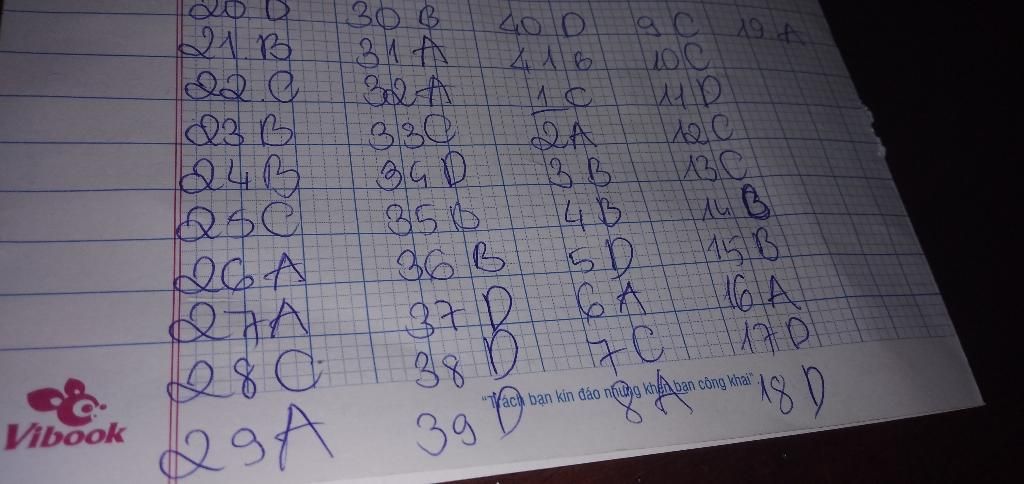 20 D 30 B 40 D 9 C 19 A
21 B 31 A 41 B 10 C
22 C 32 A 1 C 11 D
23 B 33 C 2 A 12 C
24 B 34 D 3 B 13 C
25 C 35 B 4 B 14 B
26 A 36 B 5 D 15 B
27 A 37 D 6 A 16 A
28 C 38 D 7 C 17 D
29 A 39 D 8 A 18 D
"Trách bạn kín đáo nhưng khen bạn công khai"
Vibook